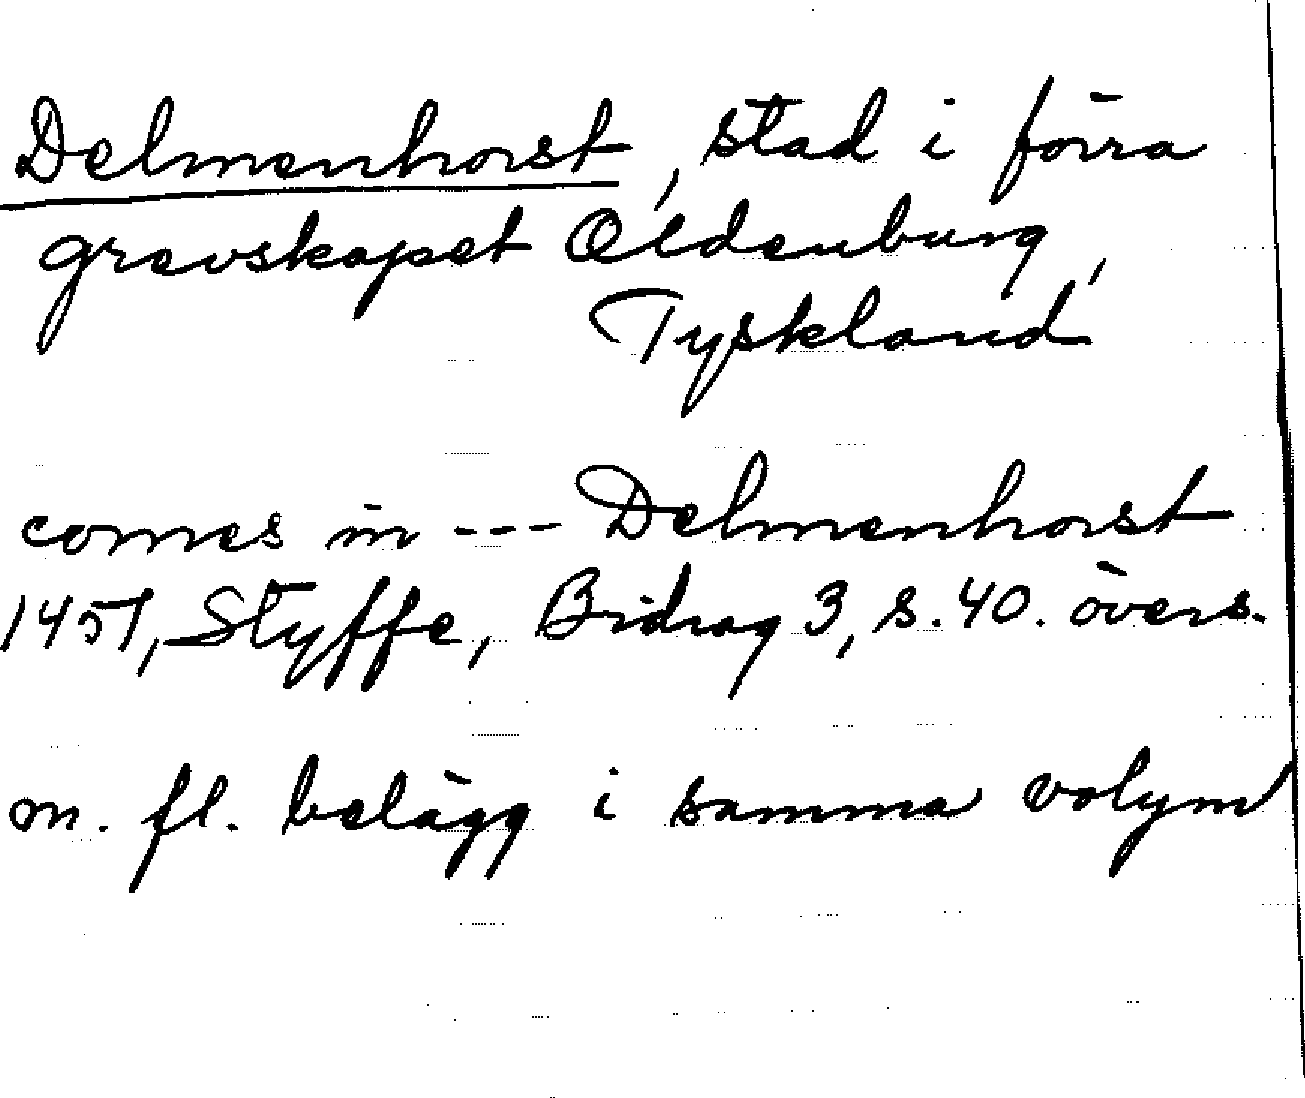 Delmenhorst, stad i förra
grevskapet Oldenburg,
Tyskland
comes in --- Delmenhorst
1457, Styffe, Bidrag 3, s. 40. övers.
m. fl. belägg i samma volym